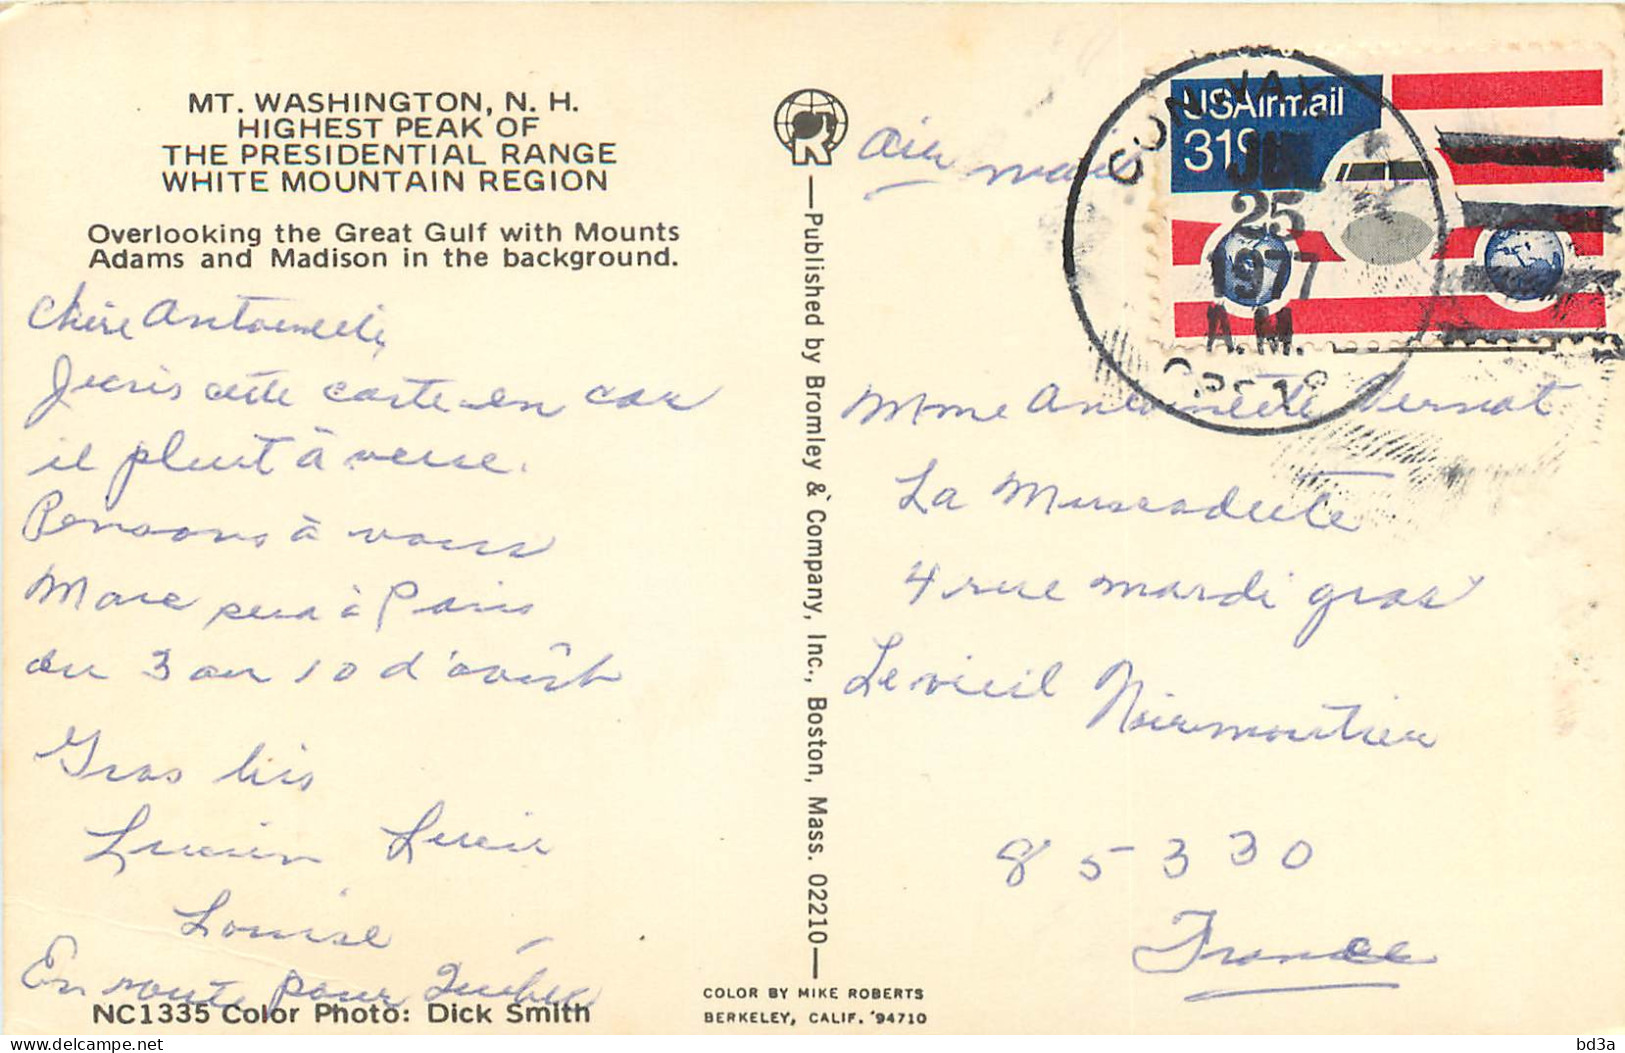 MT. WASHINGTON, N. H.
HIGHEST PEAK OF
THE PRESIDENTIAL RANGE
WHITE MOUNTAIN REGION
Overlooking the Great Gulf with Mounts
Adams and Madison in the background.
Chère Antoinette,
J'écris cette carte en car
il pleut à verse.
Pensons à vous
Marc sera à Paris
du 3 au 10 d'août
Gros bis
Lucien Lucie
Louise
En route pour Québec
NC1335 Color Photo: Dick Smith
Published by Bromley & Company, Inc., Boston, Mass. 02210
COLOR BY MIKE ROBERTS
BERKELEY, CALIF. 94710
R
air mail
USAirmail
31c
CONWAY,
25
1977
A.M.
Mme Antoinette
La Muscadette
4 rue mardi gras
Le vieil Noirmoutier
85330
France
bd3a
delcampe.net